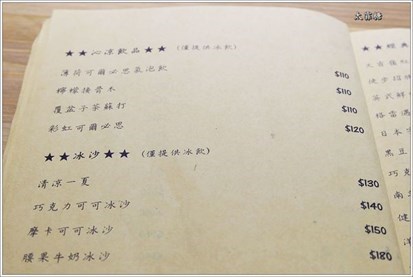 ★★沁涼飲品★★ (僅提供冰飲)
薄荷可爾必思氣泡飲 $110
檸檬接骨木 $110
覆盆子荔蘇打 $110
彩虹可爾必思 $120
★★冰沙★★ (僅提供冰飲)
清涼一夏 $130
巧克力可可冰沙 $140
摩卡可可冰沙 $150
腰果牛奶冰沙 $180
★★經典
日本
黑豆
巧克